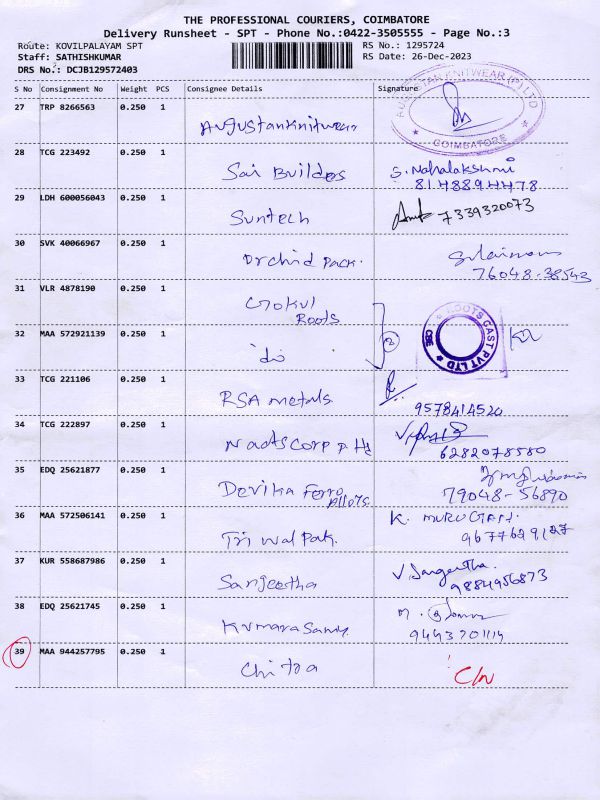 THE PROFESSIONAL COURIERS, COIMBATORE
Delivery Runsheet - SPT - Phone No.:0422-3505555 - Page No.:3
Route: KOVILPALAYAM SPT
RS No.: 1295724
Staff: SATHISHKUMAR
RS Date: 26-Dec-2023
DRS No.: DCJB129572403
S No Consignment No Weight PCS Consignee Details Signature
27 TRP 8266563 0.250 1
Augustanknitwear
KNITWEAR (P) LTD
COIMBATORE
28 TCG 223492 0.250 1
Sai Builders S. Mahalakshmi
8148894478
29 LDH 600056043 0.250 1
Suntech 7339320073
30 SVK 40066967 0.250 1
Orchid Pack.
76048-38543
31 VLR 4878190 0.250 1
Gokul
Roots
ROOTS CAST PVT LTD
CBE
32 MAA 572921139 0.250 1
do 2
33 TCG 221106 0.250 1
RSA metals
9578414520
34 TCG 222897 0.250 1
Naatscorp P Ltd
6282078580
35 EDQ 25621877 0.250 1
Devika Ferro
Alloys.
79048-56890
36 MAA 572506141 0.250 1
Tri Wal Pak. K. MURUGAN.
9677629127
37 KUR 558687986 0.250 1
Sangeetha V Sangeetha.
9884956873
38 EDQ 25621745 0.250 1
Kumarasamy
9443701114
39 MAA 944257795 0.250 1
Chitra C/N